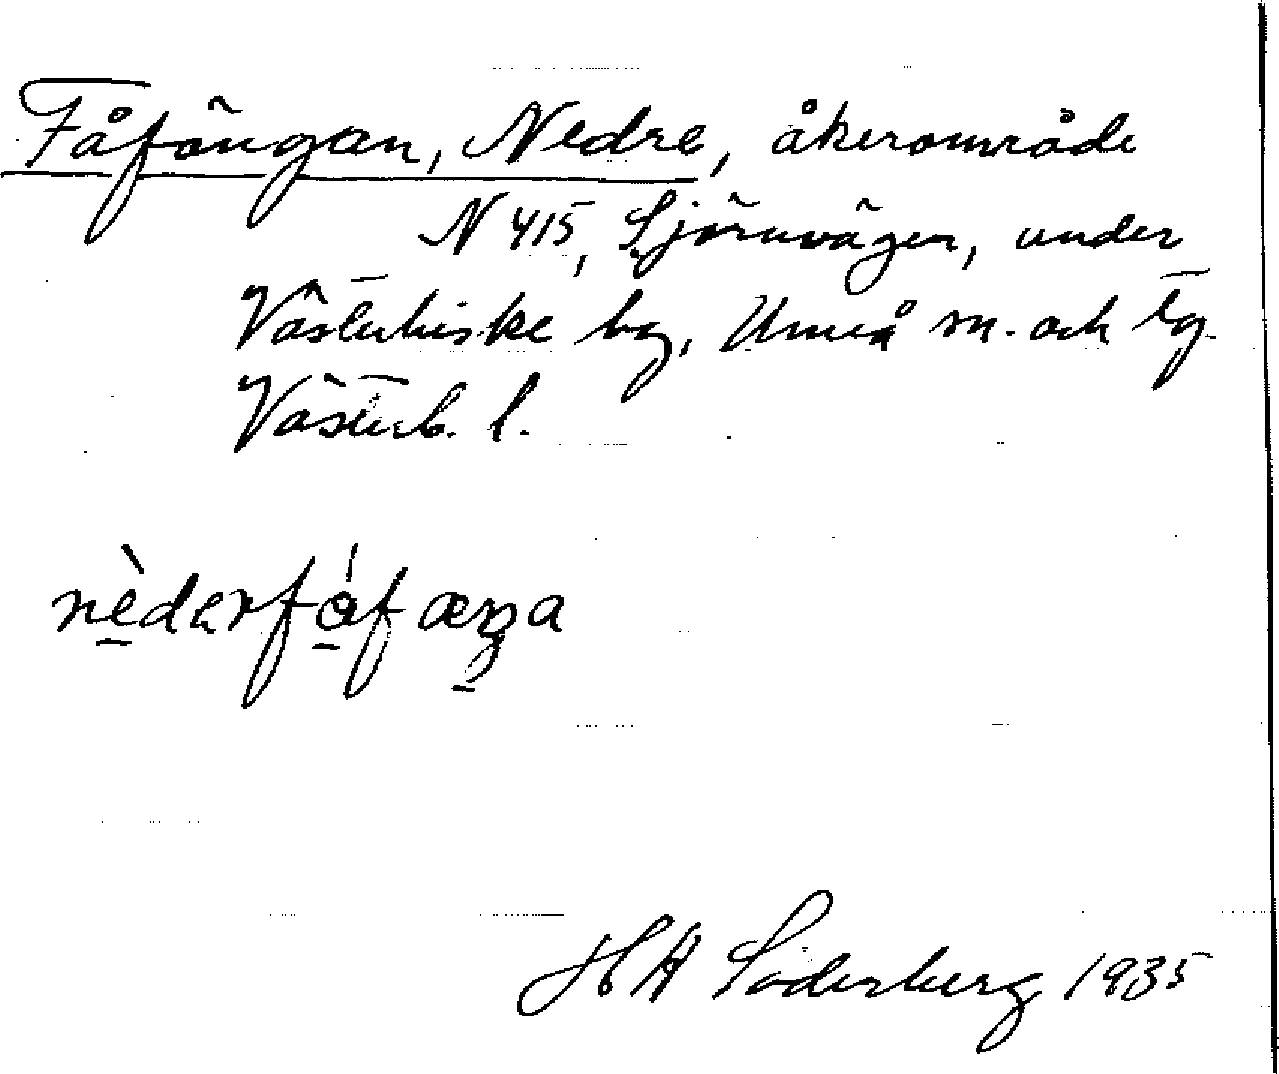 Fåfängan, Nedre, åkerområde
N 415, Sjörvägen, under
Västerhiske by, Umeå sn. och tg
Västerb. l.
nèdərfǻfæŋa
HA Söderberg 1935